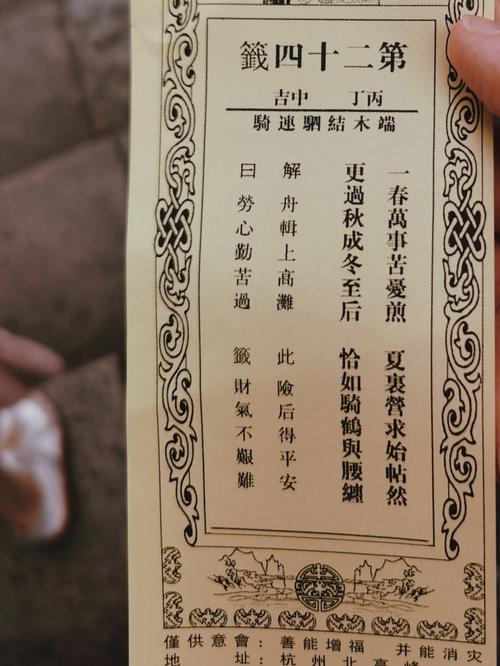 第二十四籤
丙丁 中吉
端木結駟連騎
一春萬事苦憂煎 夏裏營求始帖然
更過秋成冬至后 恰如騎鶴與腰纏
解 舟輯上高灘 此險后得平安
曰 勞心勤苦過 籤財氣不艱難
僅供意會：善能增福 并能消災
地址：杭州北高峰